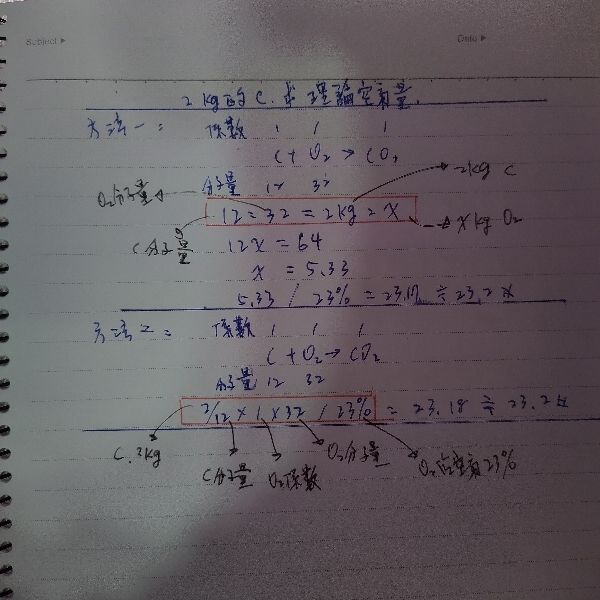 Subject ▶ Date ▶
2 kg 的 C. 求理論空氣量.
方法一: 係數 1 1 1
C + O₂ → CO₂
分子量 12 32
O₂分子量
2kg C
12 : 32 = 2kg : X
X kg O₂
C分子量
12X = 64
X = 5.33
5.33 / 23% = 23.17 ≒ 23.2
方法二: 係數 1 1 1
C + O₂ → CO₂
分子量 12 32
2/12 × 1 × 32 / 23% = 23.18 ≒ 23.2
C. 2kg
C分子量 O₂係數 O₂分子量 O₂佔空氣23%